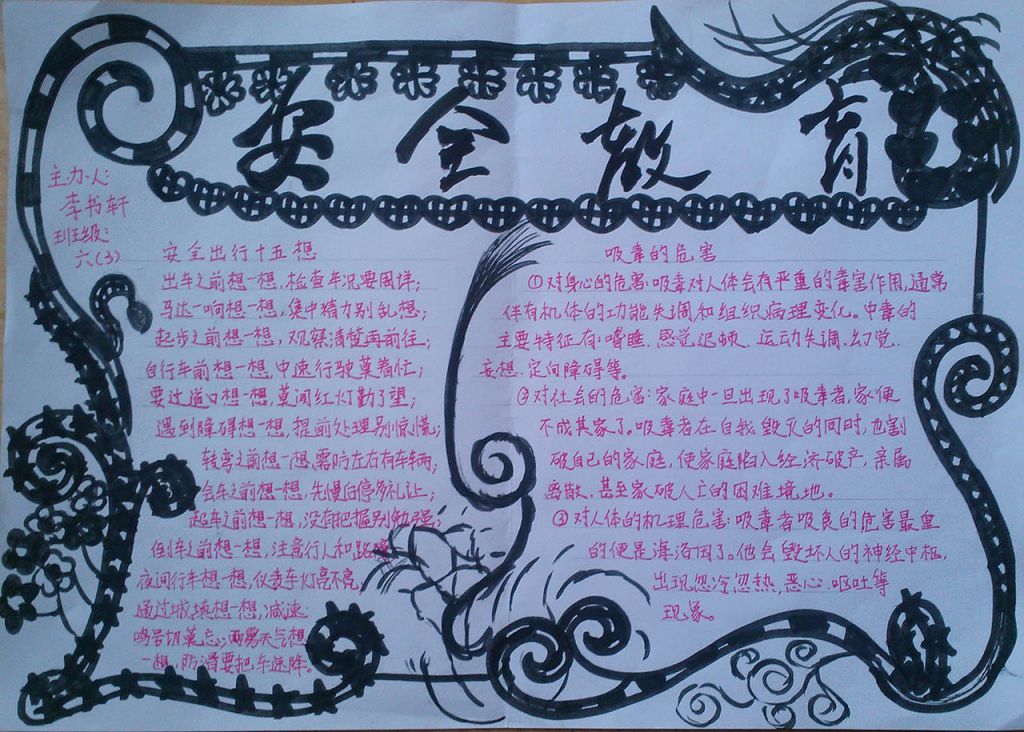 安全教育
主办人:
李书轩
班级:
六(3)
安全出行十五想
出车之前想一想,检查车况要周详;
马达一响想一想,集中精力别乱想;
起步之前想一想,观察清楚再前往;
自行车前想一想,中速行驶莫着忙;
要过道口想一想,莫闯红灯勤了望;
遇到障碍想一想,提前处理别惊慌;
转弯之前想一想,需防左右有车辆;
会车之前想一想,先慢后停多礼让;
超车之前想一想,没有把握别勉强;
倒车之前想一想,注意行人和路障
夜间行车想一想,仪表车灯亮不亮
通过城镇想一想,减速
鸣号切莫忘;雨雾天气想
一想,防滑要把车速降。
吸毒的危害
①对身心的危害:吸毒对人体会有严重的毒害作用,通常
伴有机体的功能失调和组织病理变化。中毒的
主要特征有:嗜睡、感觉迟顿、运动失调、幻觉、
妄想、定向障碍等。
②对社会的危害:家庭中一旦出现了吸毒者,家便
不成其家了。吸毒者在自我毁灭的同时,也割
破自己的家庭,使家庭陷入经济破产,亲属
离散、甚至家破人亡的困难境地。
③对人体的机理危害:吸毒者吸食的危害最重
的便是海洛因了。他会毁坏人的神经中枢,
出现忽冷忽热,恶心、呕吐等
现象。